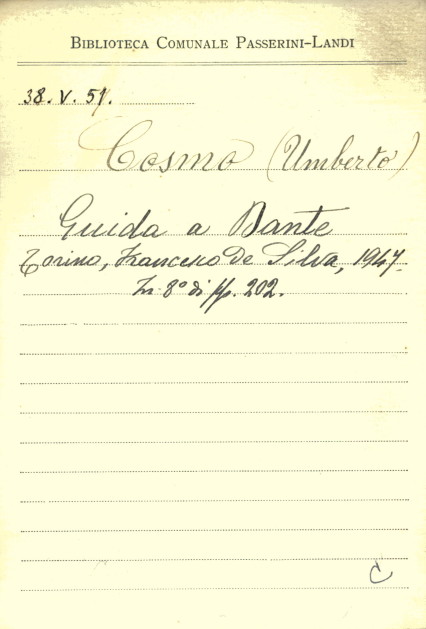 BIBLIOTECA COMUNALE PASSERINI-LANDI
38. V. 51.
Cosmo (Umberto)
Guida a Dante
Torino, Francesco De Silva, 1947.
In 8° di pp. 202.
C